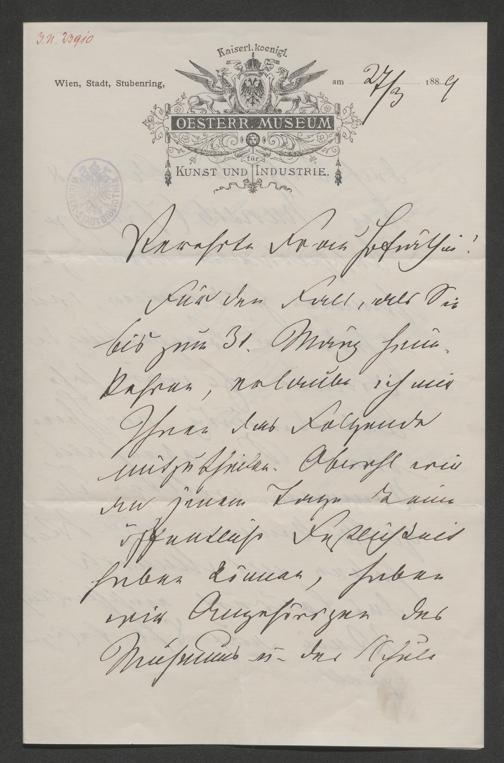 I.N. 23910
Kaiserl. koenigl.
Wien, Stadt, Stubenring, am 27/3 1889
OESTERR. MUSEUM
für
KUNST UND INDUSTRIE.
Verehrte Frau Hofräthin!
Für den Fall, als Sie
bis zum 31. März heim-
kehren, erlaube ich mir
Ihnen das Folgende
mitzutheilen. Obwohl wir
an jenem Tage keine
öffentliche Festlichkeit
haben können, haben
wir Angehörigen des
Museums u. der Schule